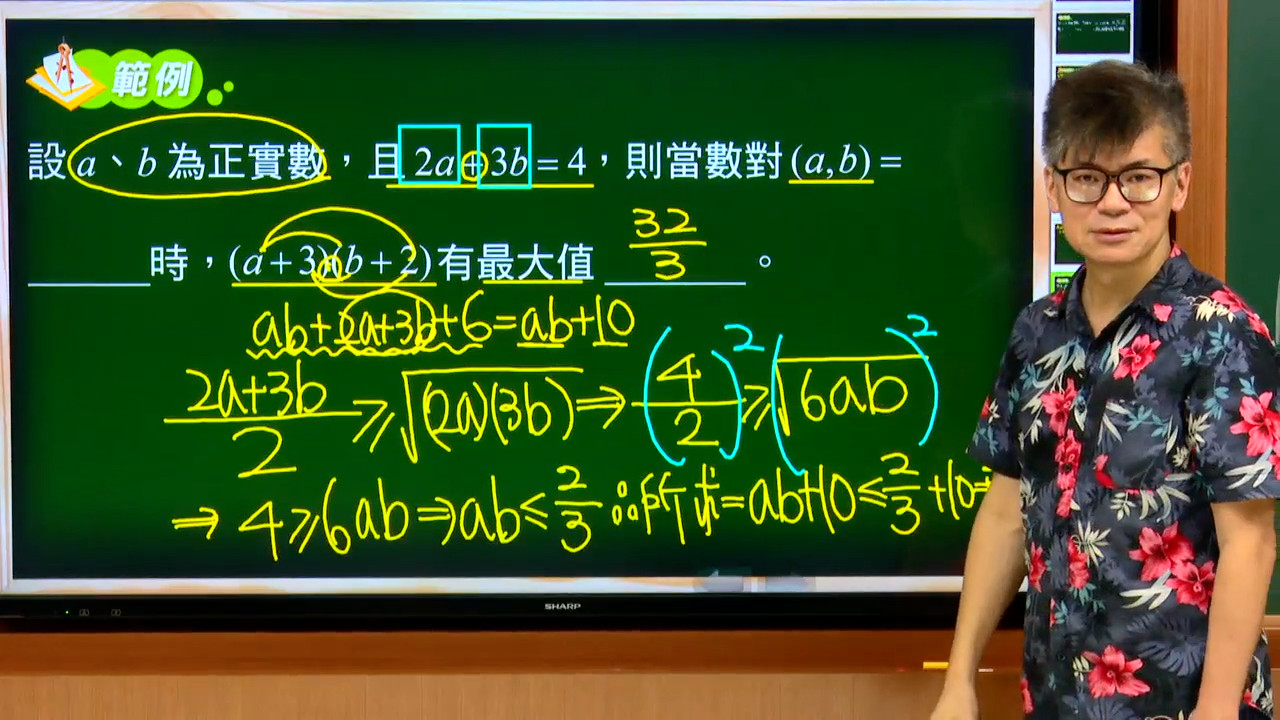 範例
設 a、b 為正實數，且 2a+3b=4，則當數對 (a,b)=
______時，(a+3)(b+2)有最大值 32/3 。
ab+2a+3b+6=ab+10
(2a+3b)/2 ≥ √((2a)(3b)) ⇒ (4/2)² ≥ (√(6ab))²
⇒ 4≥6ab ⇒ ab≤2/3 ∴所求=ab+10≤2/3+10=
SHARP